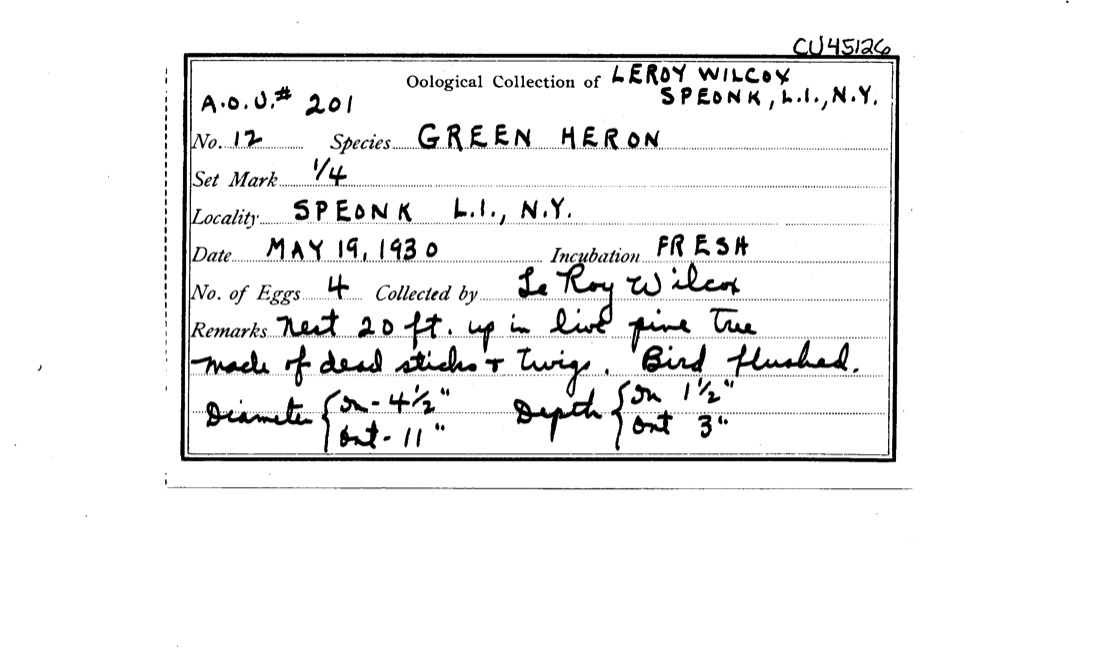 CU45126
Oological Collection of LEROY WILCOX
SPEONK, L.I., N.Y.
A.O.U.# 201
No. 12 Species GREEN HERON
Set Mark 1/4
Locality SPEONK L.I., N.Y.
Date MAY 19, 1930 Incubation FRESH
No. of Eggs 4 Collected by Le Roy Wilcox
Remarks Nest 20 ft. up in live pine tree
made of dead sticks + twigs. Bird flushed.
Diameter { In - 4 1/2" Depth { In 1 1/2"
Out - 11" Out 3"